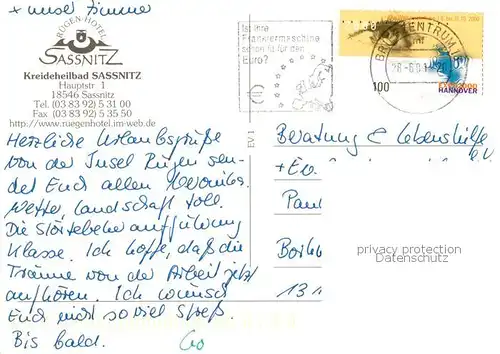 + unser Zimmer
RÜGEN-HOTEL
SASSNITZ
Kreideheilbad SASSNITZ
Hauptstr 1
18546 Sassnitz
Tel. (03 83 92) 5 31 00
Fax (03 83 92) 5 35 50
http://www.ruegenhotel.im-web.de
Herzliche Urlaubsgrüße
von der Insel Rügen sen-
det Euch allen Veronika.
Wetter, Landschaft toll.
Die Störtebekeraufführung
Klasse. Ich hoffe, daß die
Träume von der Arbeit jetzt
aufhören. Ich wünsch
Euch nicht so viel Streß.
Bis bald.
EV 1
Ist Ihre
Frankiermaschine
schon fit für den
Euro?
BRIEFZENTRUM 18
100
EXPO2000
HANNOVER
Beratung & Lebenshilfe
e.V.
+ Ev.
Paul
13
privacy protection
Datenschutz